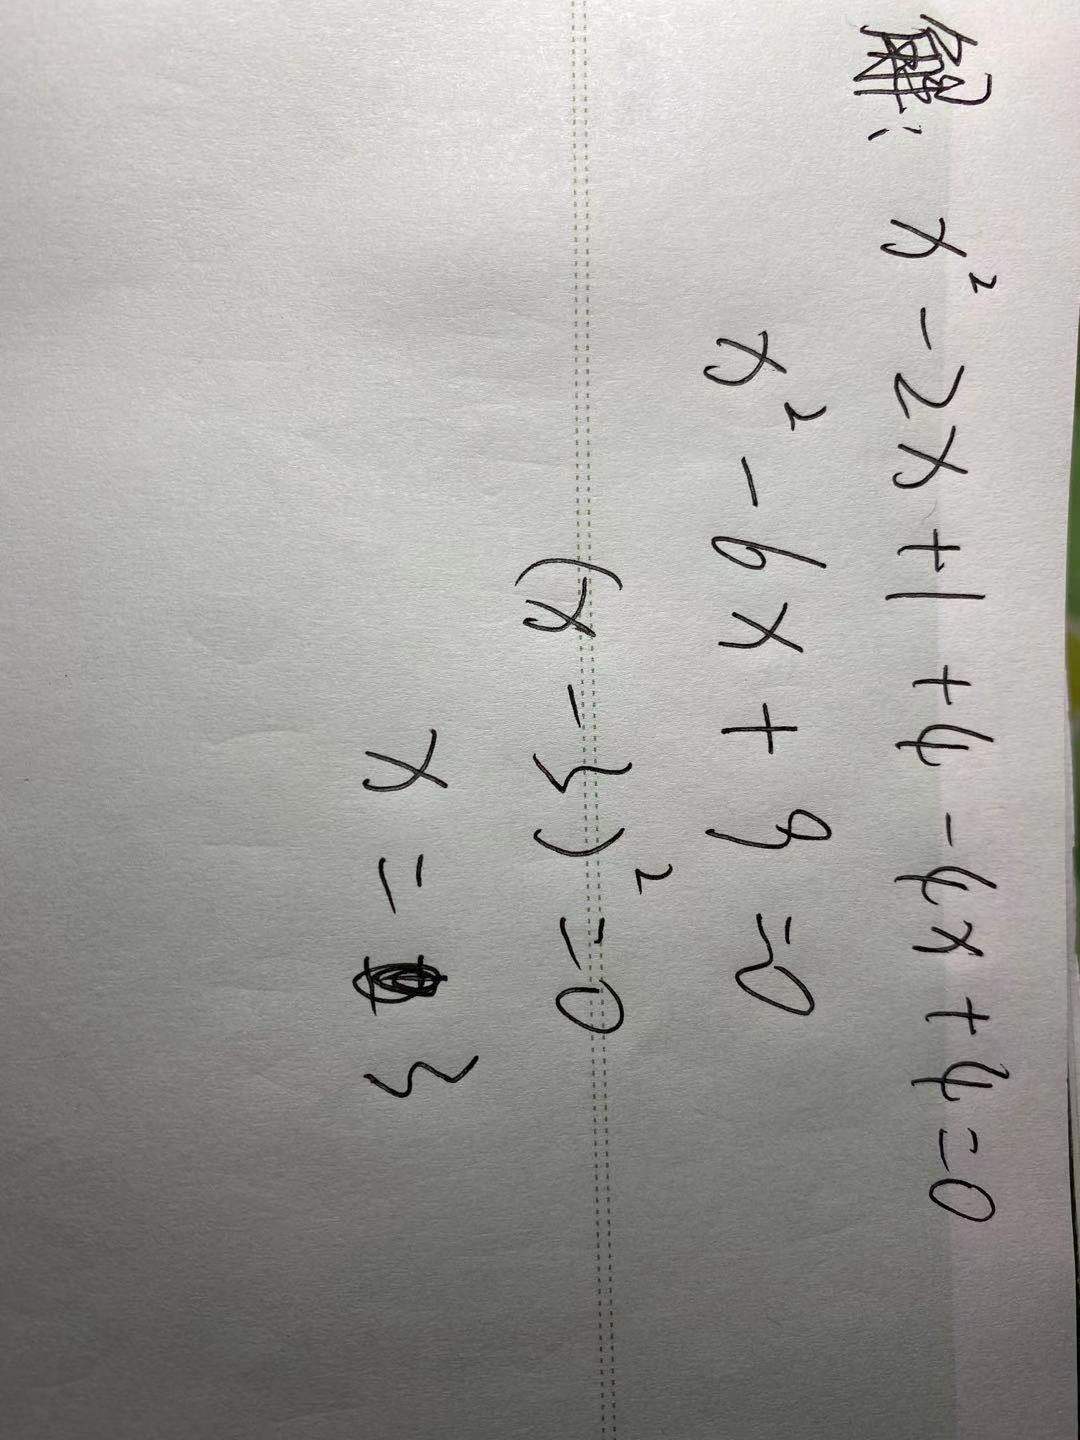 解: x²-2x+1+4-4x+4=0
x²-6x+9=0
(x-3)²=0
x=3